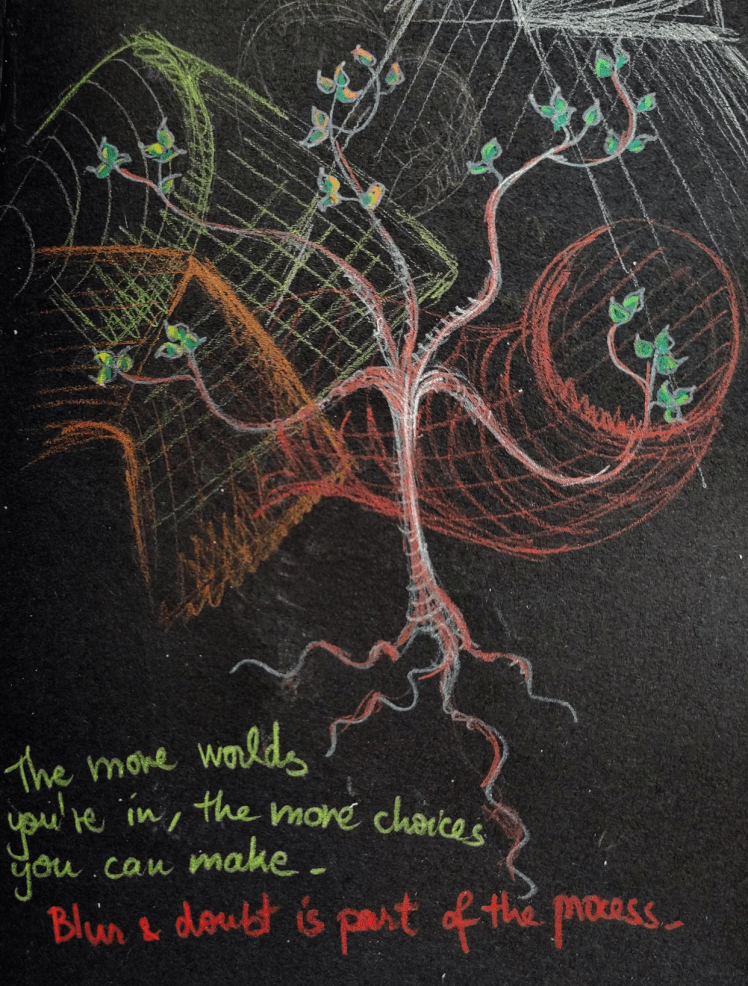 The more worlds
you're in, the more choices
you can make -
Blur & doubt is part of the process -